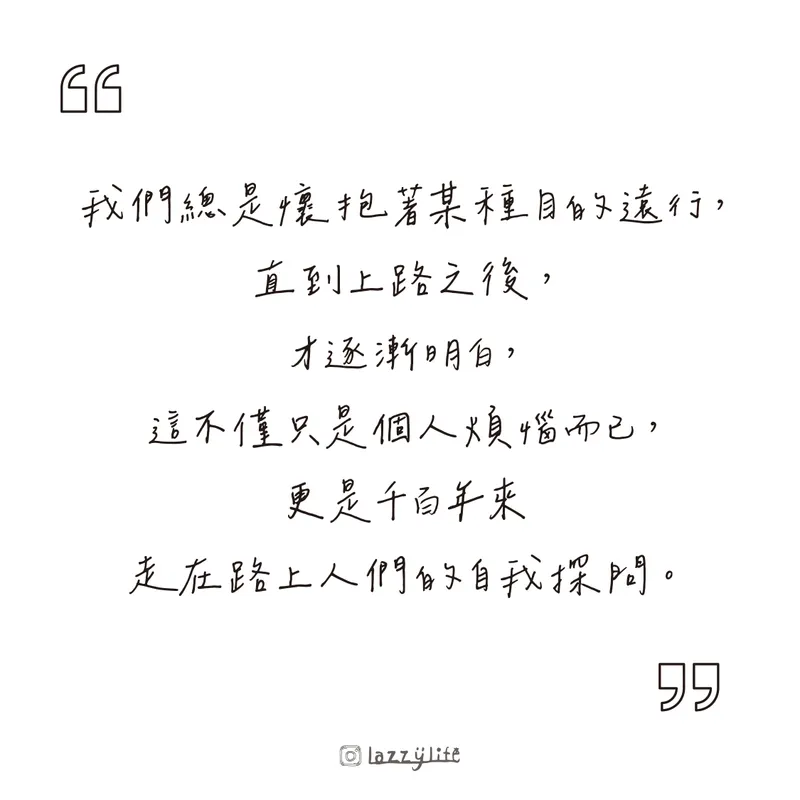 “
我們總是懷抱著某種目的遠行，
直到上路之後，
才逐漸明白，
這不僅只是個人煩惱而已，
更是千百年來
走在路上人們的自我探問。
”
lazzylife